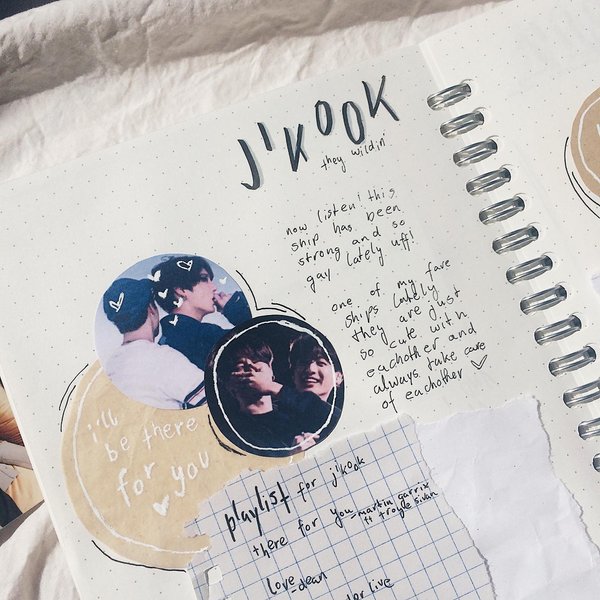 J'KOOK
they wildin'
now listen! this
ship has been
strong and so
gay lately uff!
one of my fave
ships lately
they are just
so cute with
eachother and
always take care
of eachother
i'll
be there
for
you
playlist for j'kook
there for you - martin garrix
ft troye sivan
love - dean
for live